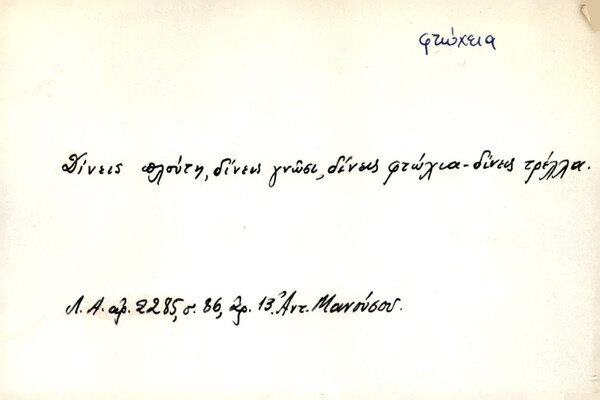 φτώχεια
Δίνεις πλούτη, δίνεις γνῶσι, δίνεις φτώχια - δίνεις τρέλλα.
Λ. Α. ἀρ. 2285, σ. 86, ἀρ. 13. Ἀντ. Μανούσου.